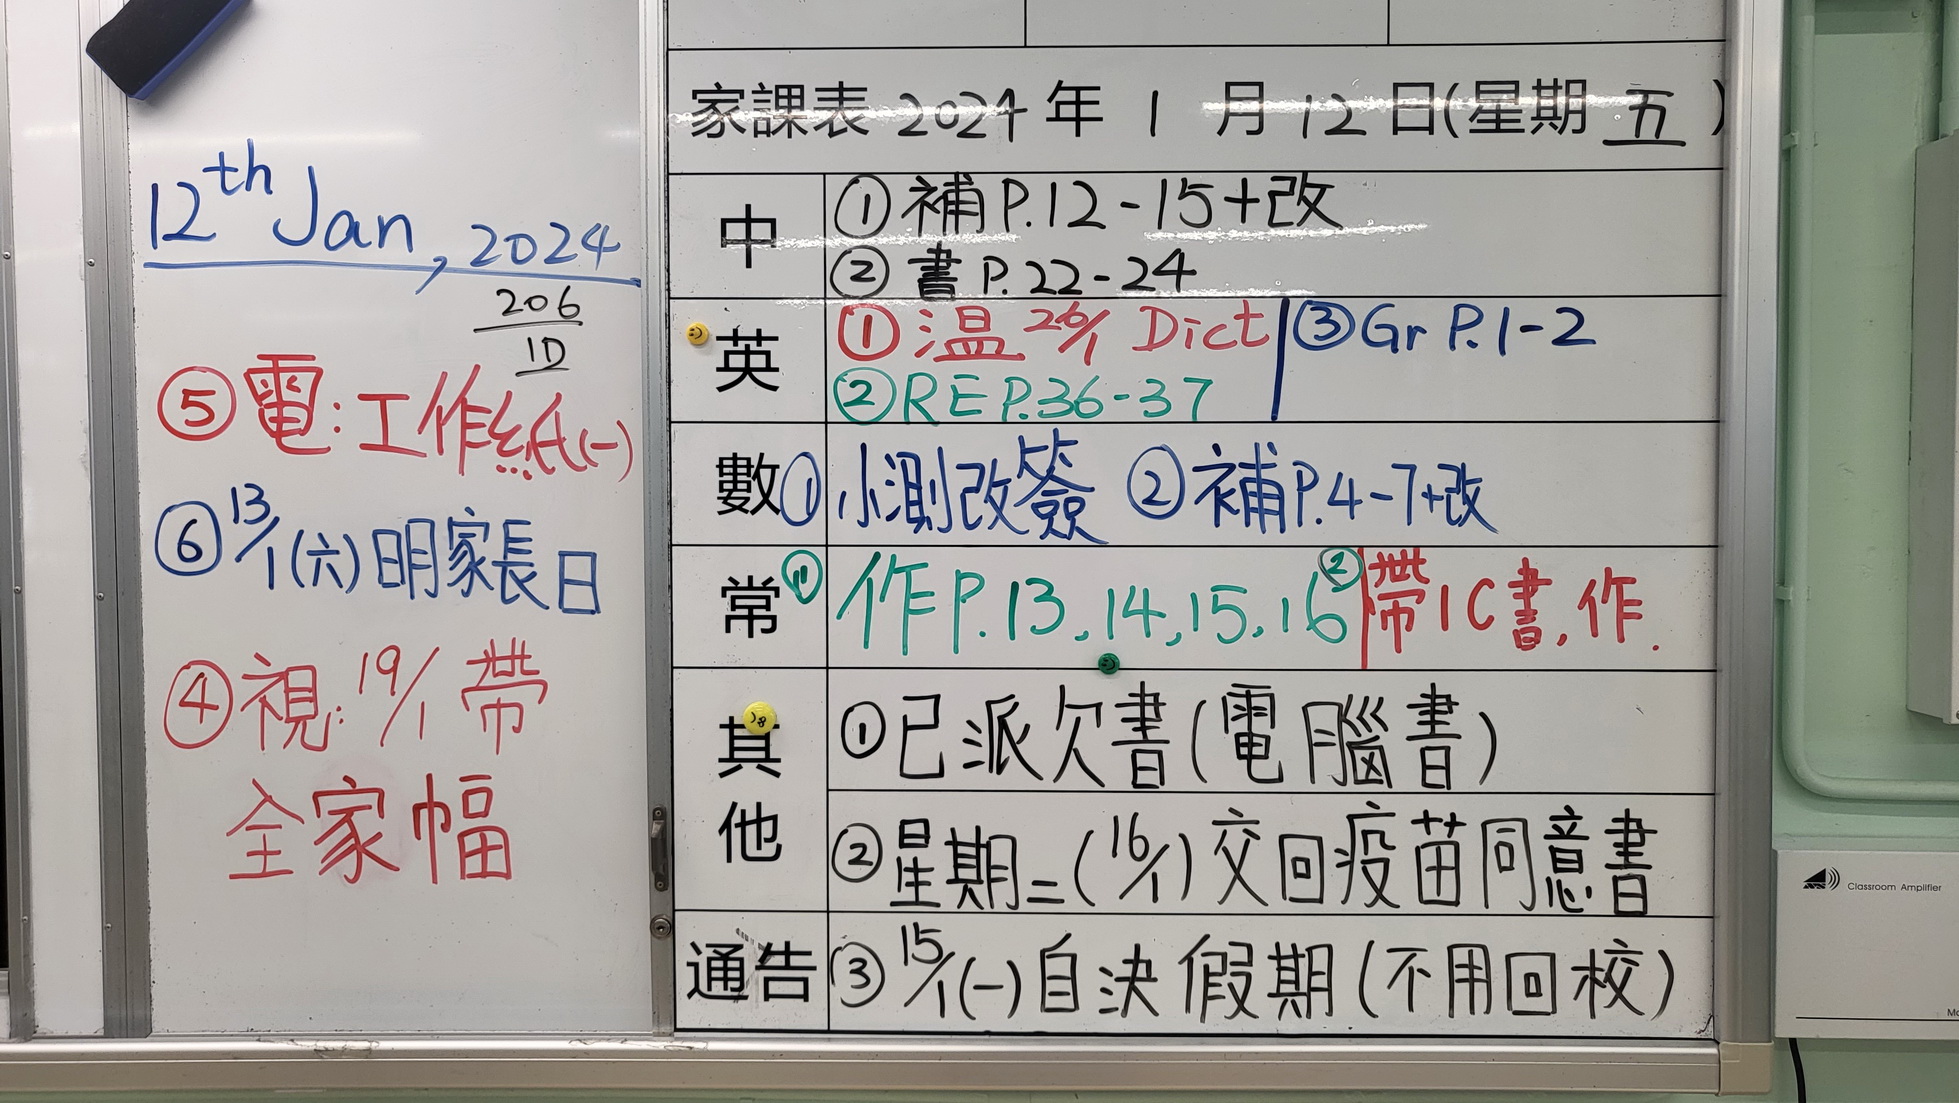 12th Jan, 2024
206
1D
⑤電:工作紙(一)
⑥13/1(六)明家長日
④視:19/1 帶
全家幅
家課表 2024 年 1 月 12 日(星期 五 )
中
①補 P.12-15+改
②書 P.22-24
英
①温 26/1 Dict ③Gr P.1-2
②RE P.36-37
數 ①小測改簽 ②補P.4-7+改
常 ①作 P.13,14,15,16 ②帶1C書,作.
其他
①已派欠書(電腦書)
②星期二(16/1)交回疫苗同意書
通告 ③15/1(一)自決假期(不用回校)
Classroom Amplifier